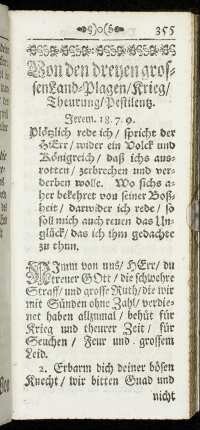 355
Von den dreyen gros-
sen Land-Plagen/Krieg/
Theurung/Pestilentz.
Jerem. 18. 7. 9.
Plötzlich rede ich/ spricht der
HErr/ wider ein Volck und
Königreich/ daß ichs aus-
rotten/ zerbrechen und ver-
derben wolle. Wo sichs a-
ber bekehret von seiner Boß-
heit/ darwider ich rede/ so
soll mich auch reuen das Un-
glück/ das ich ihm gedachte
zu thun.
NImm von uns/ HErr/ du
treuer GOtt/ die schwehre
Straff/ und grosse Ruth/ die wir
mit Sünden ohne Zahl/ verdie-
net haben allzumal/ behüt für
Krieg und theurer Zeit/ für
Seuchen/ Feur und grossem
Leid.
2. Erbarm dich deiner bösen
Knecht/ wir bitten Gnad und
nicht